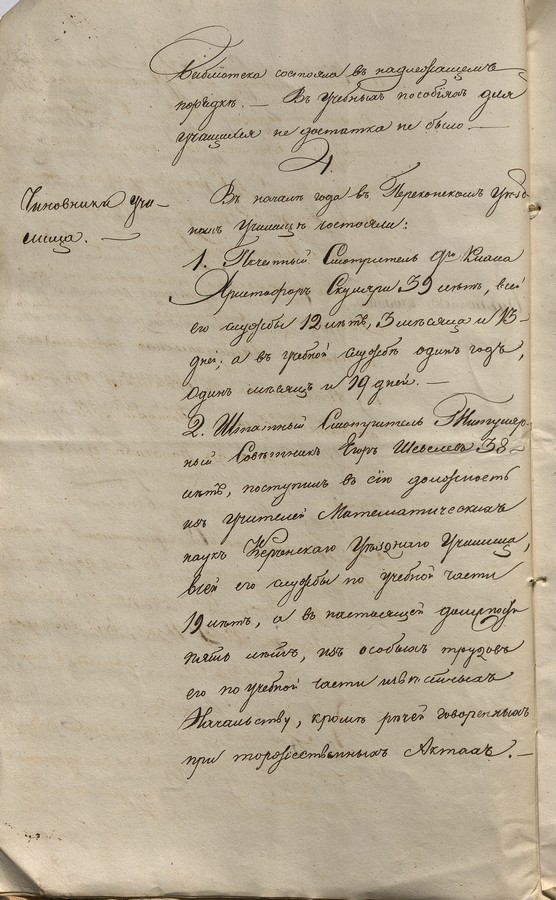 Библіотека состояла въ надлежащемъ
порядкѣ. — Въ учебныхъ пособіяхъ для
учащихся не достатка не было. —
4.
Чиновники учи-
лища. —
Въ началѣ года въ Перекопскомъ Уѣзд-
номъ Училищѣ состояли:
1. Почетный Смотритель
Христофоръ Скуляри 39 лѣтъ, всей
его службы 12 лѣтъ, 3 мѣсяца и 13
дней; а въ учебной службѣ одинъ годъ,
одинъ мѣсяцъ и 19 дней. —
2. Штатный Смотритель Титуляр-
ный Совѣтникъ Егоръ Шевелевъ 38
лѣтъ, поступилъ въ сію должность
изъ учителей Математическихъ
наукъ Керченскаго Уѣзднаго Училища,
всей его службы по учебной части
19 лѣтъ, а въ настоящей должности
пять лѣтъ, изъ особыхъ трудовъ
его по учебной части извѣстныхъ
Начальству, кромѣ рѣчей говоренныхъ
при торжественныхъ Актахъ. —